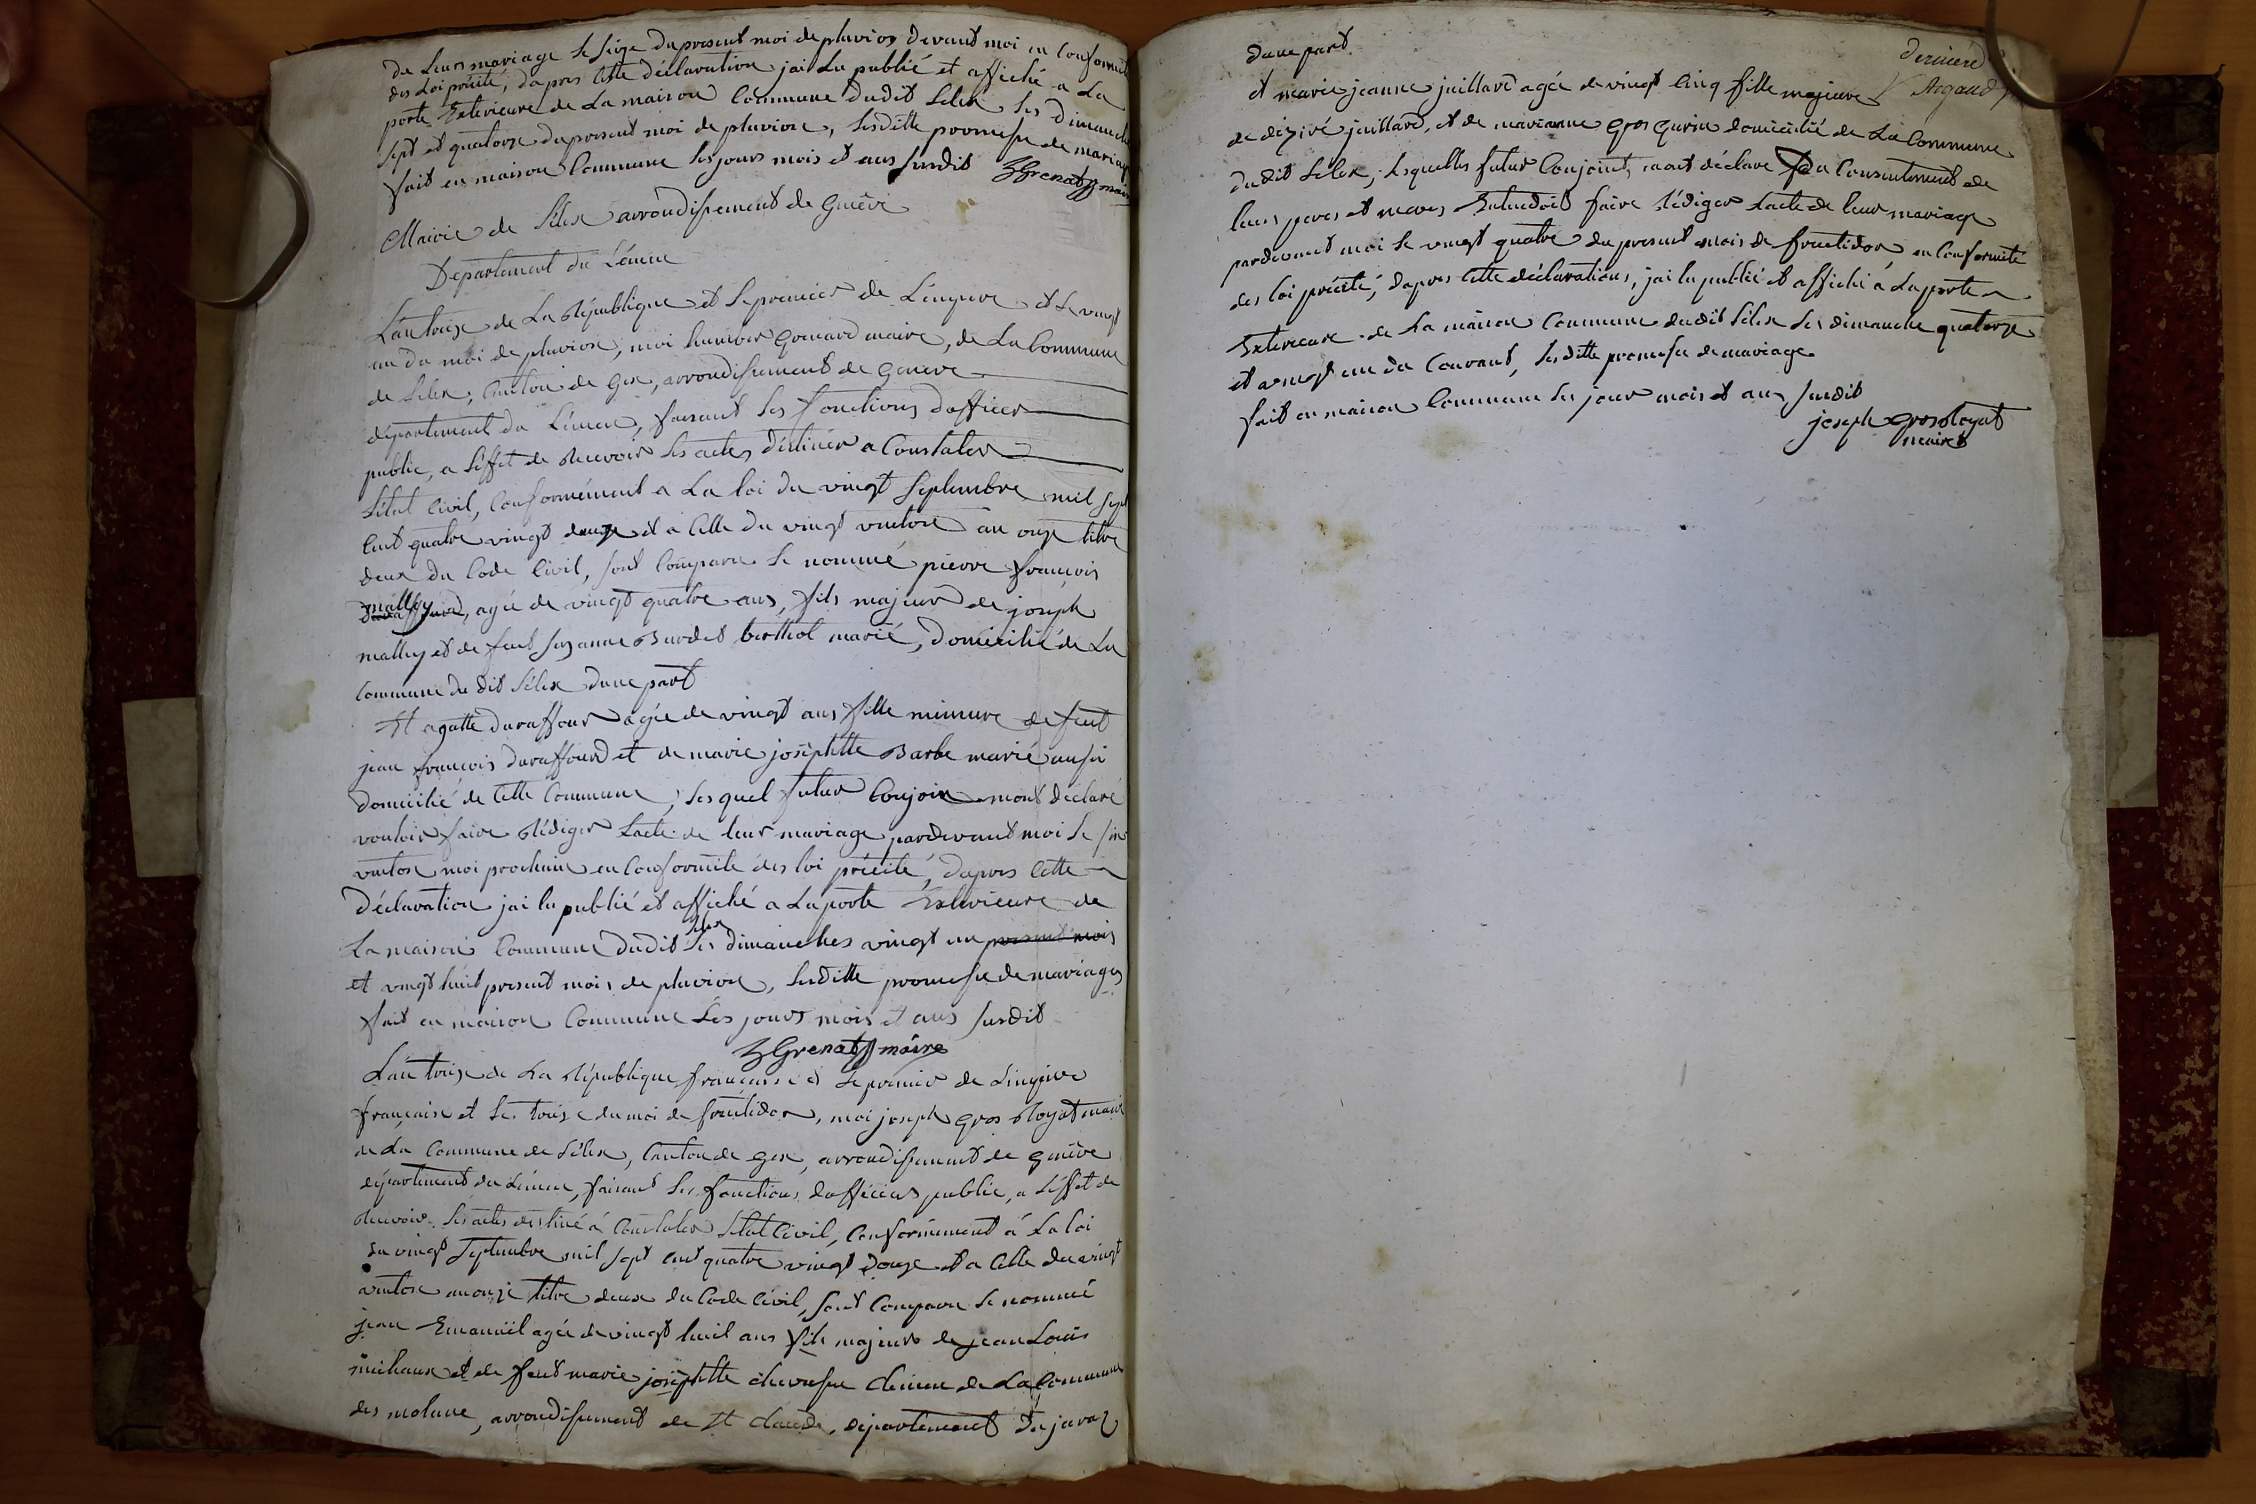 de Leurs mariage le seize du present moi de pluvios devant moi en Conformité
des Loi précité, dapres Cette déclaration jai Lu publié et affiché a La
porte Exterieure de La maison Commune dudit Lelex les Dimanche
sept et quatorze du present moi de pluviose, Lesditte promesse de mariage
fait en maison Commune les jours mois et ans susdit Grenat maire
Mairie de Lélex arrondissement de Genève
Département du Léman
L'an treize de La République et le premier de L'empire et le vingt
un du moi de pluviose, moi humber Gomard maire, de La Commune
de Lelex, Canton de Gex, arrondissement de Genève
département du Léman, faisant les fonctions dofficier
public, a leffet de Recevoir les actes destinés a Constater
Létat Civil, Conformément a La loi du vingt septembre mil sept
Cent quatre vingt douze et a Celle du vingt ventose an onze titre
deux du Code Civil, sont Comparu le nommé pierre françois
mallez, agée de vingt quatre ans, fils majeur de joseph
mallez et de feut suzanne Burdet berthol marié, Domicilié de La
Commune du dit Lélex dune part
Et agatte duraffour agée de vingt ans fille mineure de feut
jean françois duraffourd et de marie josephtte Barbe marié aussi
domicilié de Cette Commune, lesquel futur Conjoix mont déclaré
vouloir faire Rédiger Lacte de leur mariage pardevant moi le six
ventose moi prochain en Conformité des loi précité, dapres Cette
Déclaration jai lu publié et affiché a La porte Exterieure de
La maison Commune dudit Lelex les dimanches vingt un present mois
et vingt huit present mois de pluviose, Lesditte promesse de mariages
fait en maison Commune Les jours mois et ans susdit
Grenat maire
L'an treize de La République française et le premier de L'empire
française et le treize du moi de fructidor, moi joseph gros Royat maire
de La Commune de Lélex, Canton de gex, arrondissement de genève
département du Léman, faisant les fonctions dofficiers public, a Leffet de
Recevoir les actes destiné à Constater Létat Civil, Conformément à La loi
du vingt septembre mil sept cent quatre vingt douze et a Celle du vingt
ventose an onze titre deux du Code Civil, sont Comparu le nommé
jean Emanuël agée de vingt huit ans fils majeur de jean Louis
michaux et de feut marie josephtte de La Commune
des molune, arrondissement de St Claude, département du jura
dune part
dernière
Et marie jeanne juillard agée de vingt Cinq fille majeure Argaud
de dézivé juillard, et de marianne gros gurin domicilié de La Commune
dudit Lelex, Lesquelles futur Conjoint, mont déclaré du Consentement de
leurs peres et meres Entendoit faire Rédiger Lacte de leur mariage
pardevant moi le vingt quatre du present mois de fructidor en Conformité
des loi précité, dapres Cette déclarations, jai lu publié et affiché à La porte
Exterieure de La maison Commune dudit Lélex les dimanche quatorze
et vingt un du Courant, Lesditte promesse de mariage
fait en maison Commune les jour mois et ans susdit
joseph gros Royat
maire